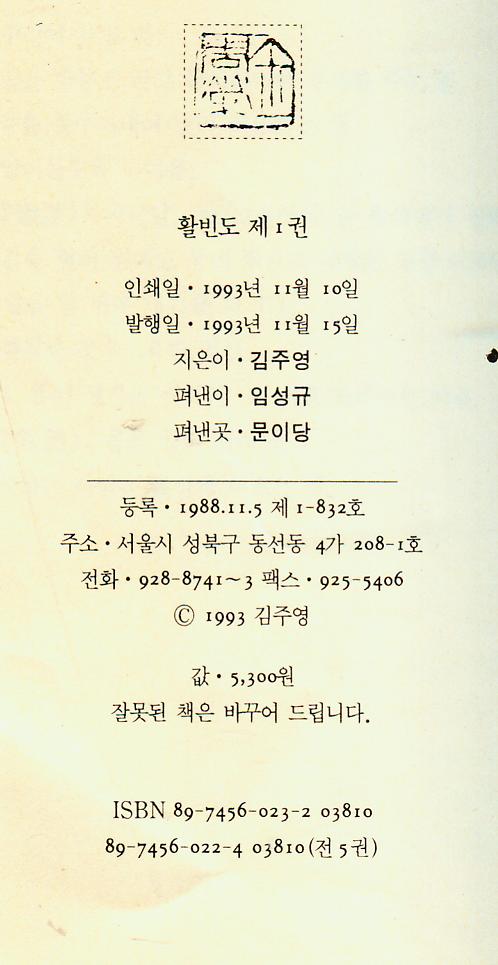 활빈도 제 1 권
인쇄일 · 1993년 11월 10일
발행일 · 1993년 11월 15일
지은이 · 김주영
펴낸이 · 임성규
펴낸곳 · 문이당
등록 · 1988.11.5 제 1-832호
주소 · 서울시 성북구 동선동 4가 208-1호
전화 · 928-8741~3 팩스 · 925-5406
© 1993 김주영
값 · 5,300원
잘못된 책은 바꾸어 드립니다.
ISBN 89-7456-023-2 03810
89-7456-022-4 03810(전 5권)